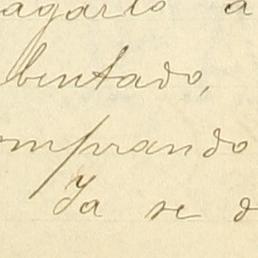 agarlo a
bentado,
omprando
Ya se d